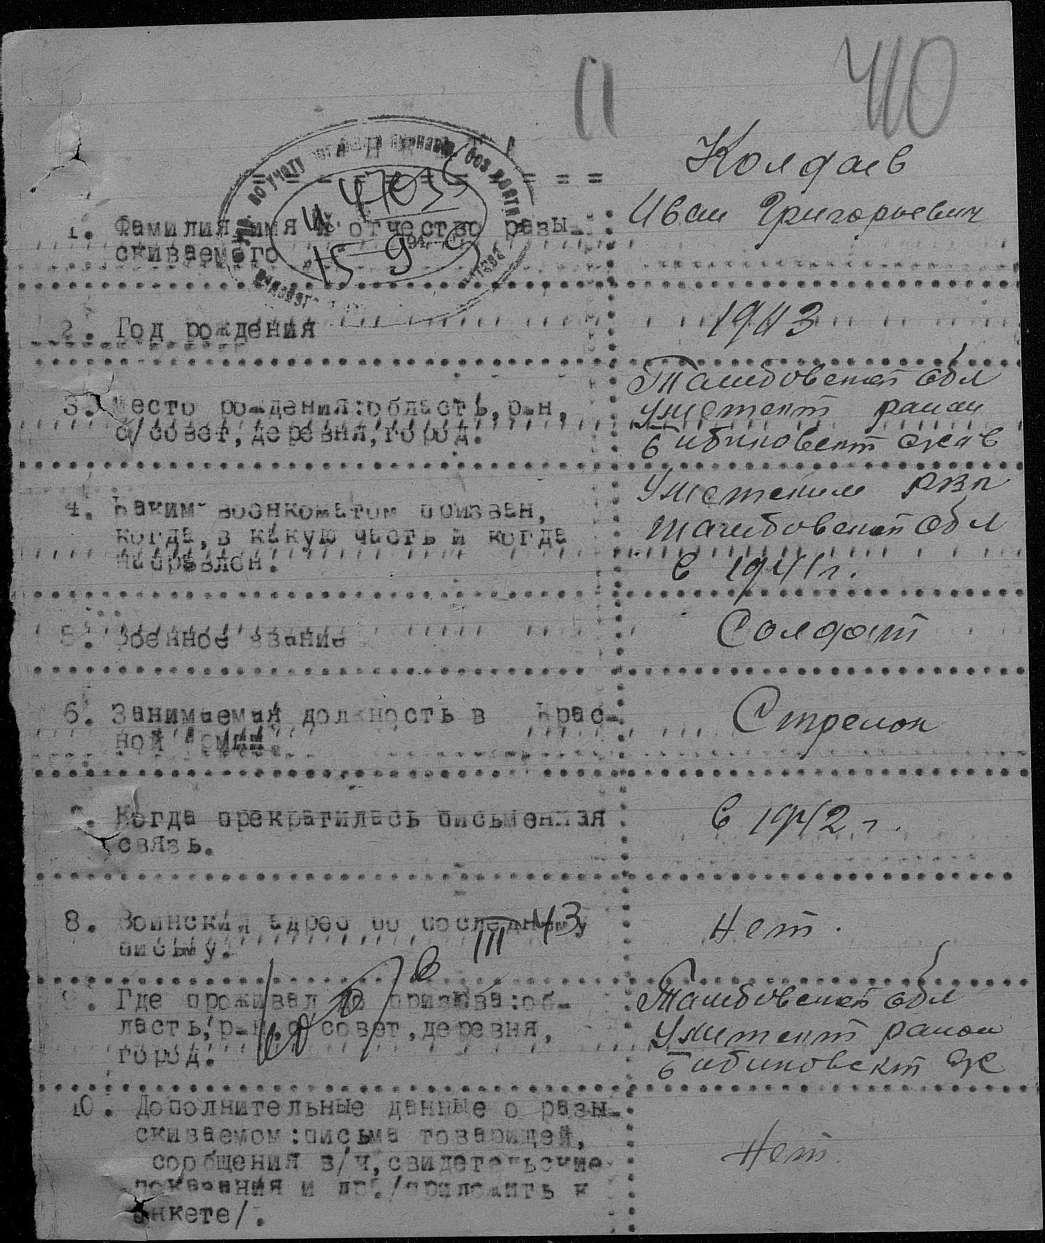 11
410
АНКЕТА
Колдаев
Иван Григорьевич
И 47035
15 9
1. Фамилия имя и отчество разы-
скиваемого
2. Год рождения
1913
3. Место рождения:область, р-н,
с/совет, деревня, город.
Тамбовская обл
Умётский район
Бибиковский с/сов
4. Каким военкоматом призван,
когда, в какую часть и когда
направлен.
Умётским РВК
Тамбовская обл
в 1941 г.
5. Военное звание
Солдат
6. Занимаемая должность в Крас-
ной Армии.
Стрелок
7. Когда прекратилась письменная
связь.
в 1942 г.
8. Воинский адрес по последнему
письму.
Нет.
III 43
9. Где проживал до призыва:об-
ласть, р-н, с/совет, деревня,
город.
Тамбовская обл
Умётский район
Бибиковский с/с
10. Дополнительные данные о разы-
скиваемом:письма товарищей,
сообщения в/ч, свидетельские
показания и др. /приложить к
анкете/.
Нет.